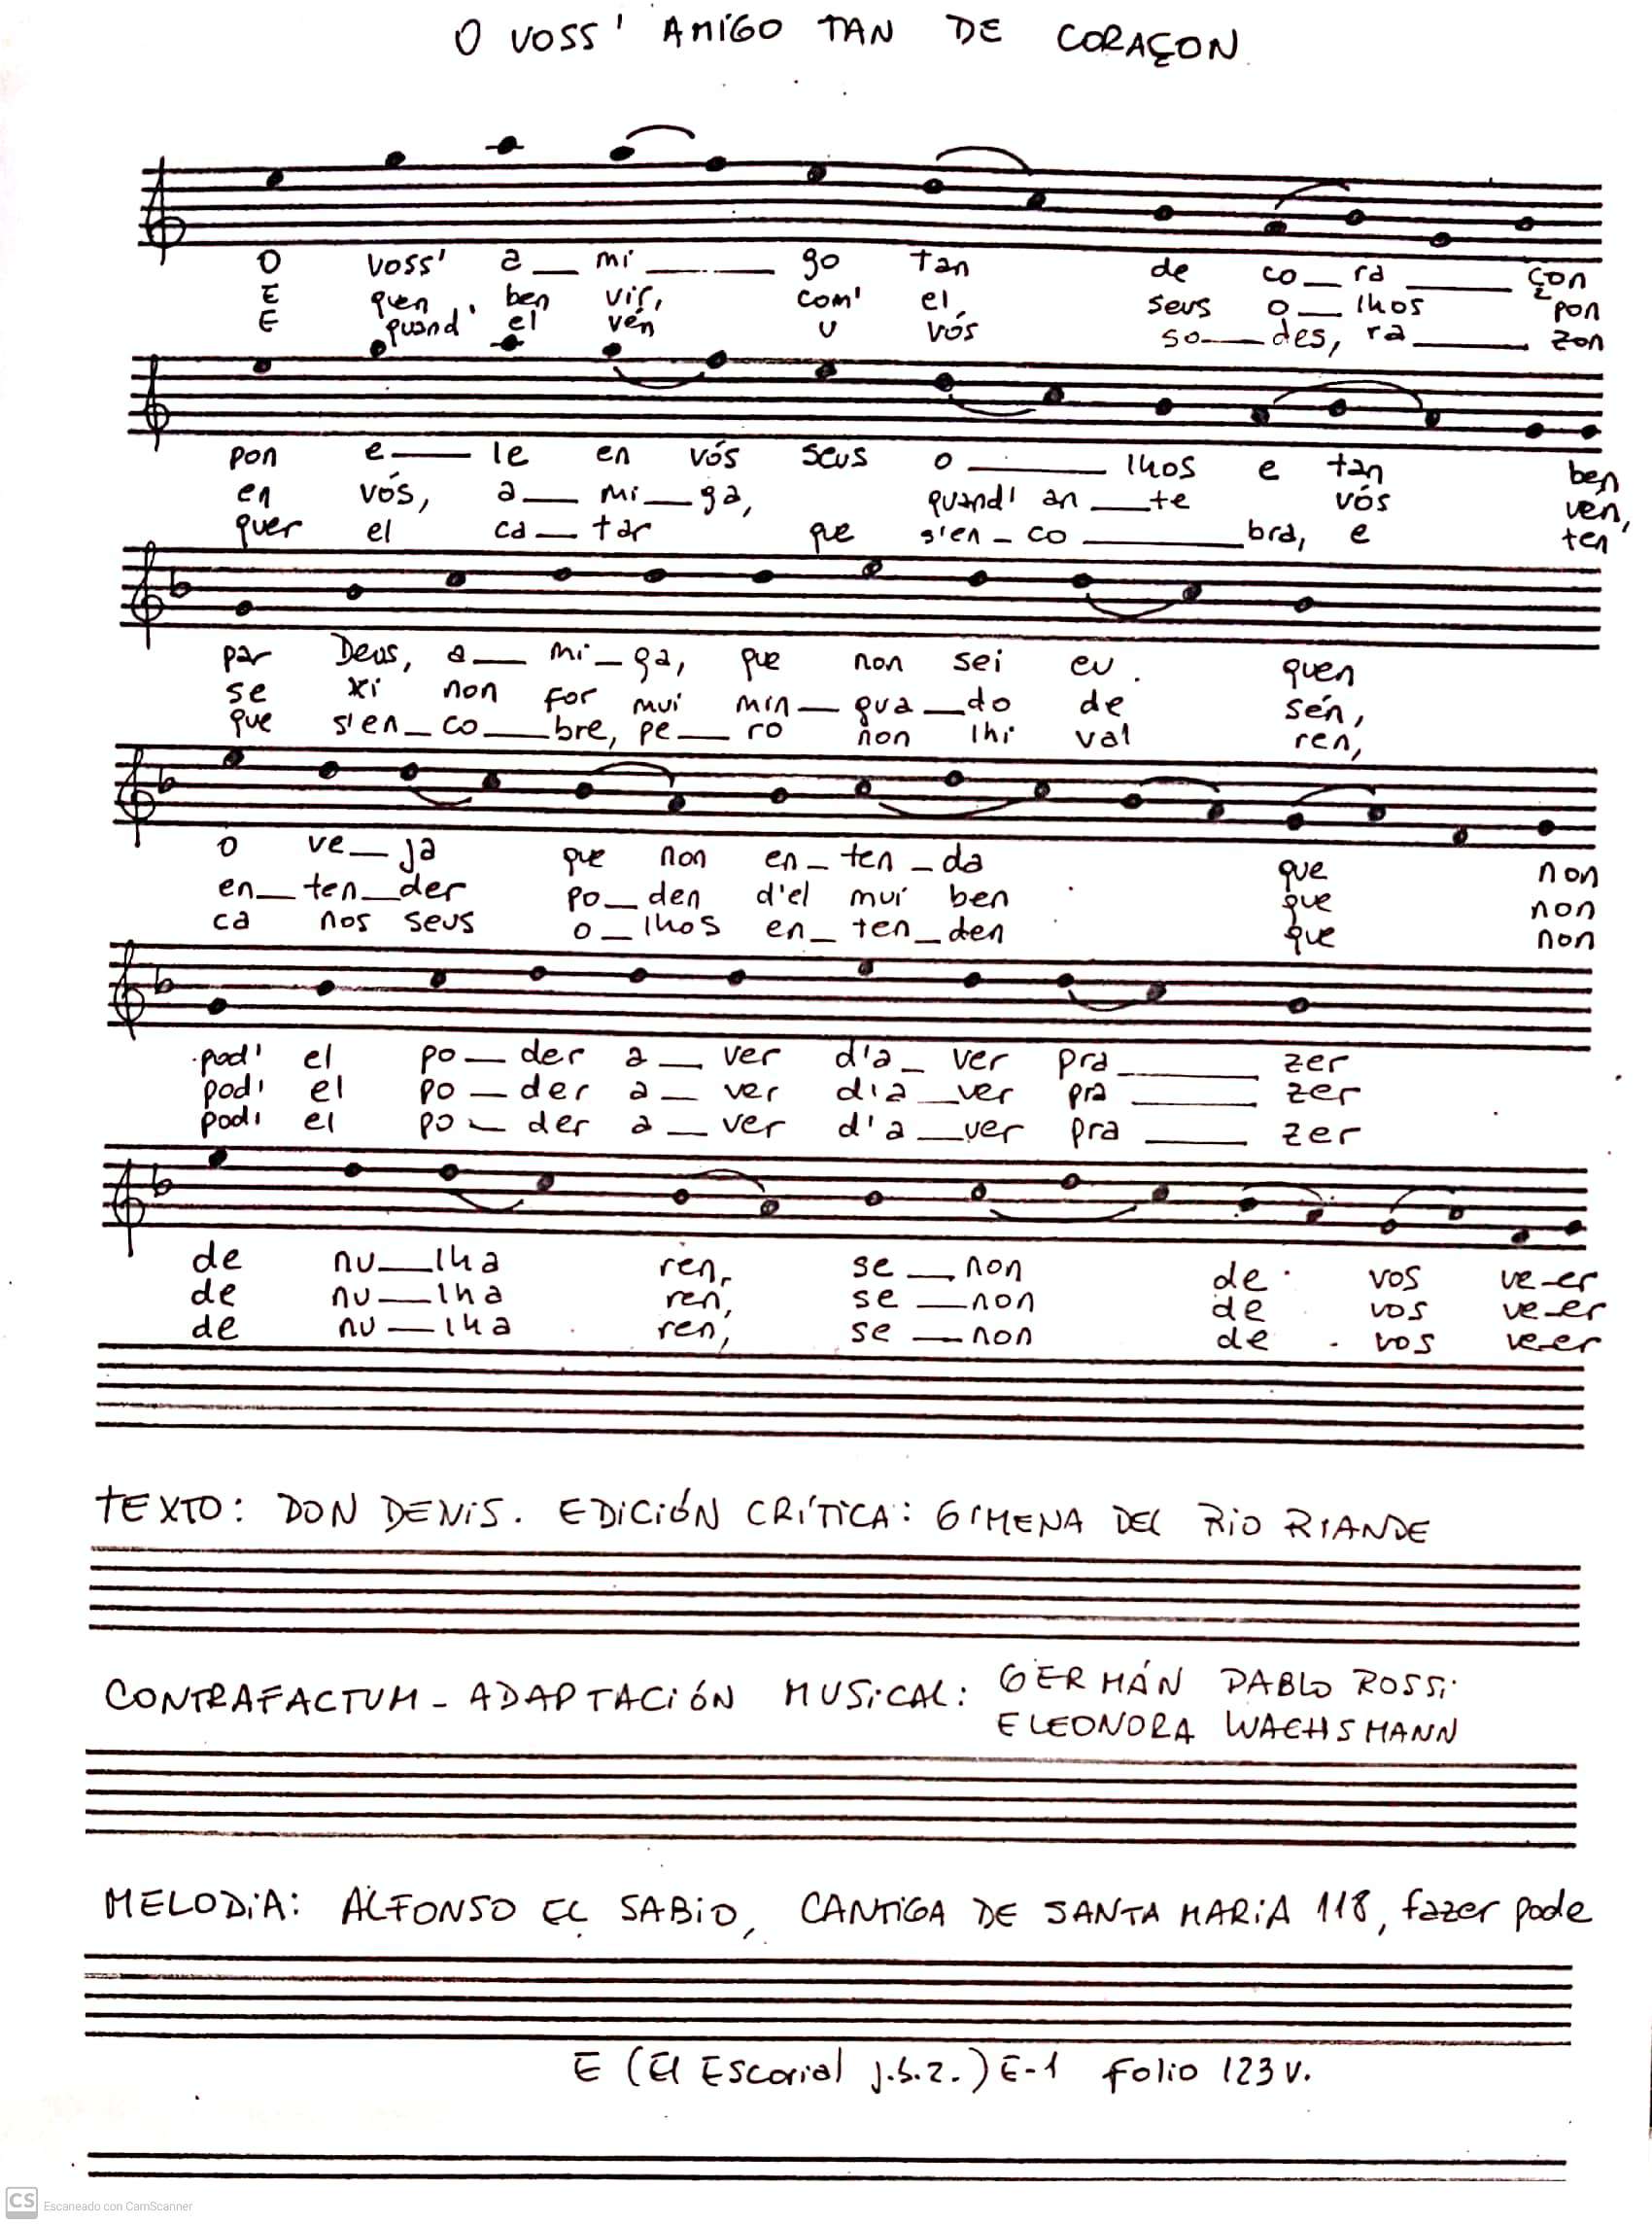 O VOSS' AMIGO TAN DE CORAÇON
O voss' a_mi_go tan de co_ra_çon
E quen ben vir, com' el seus o_lhos pon
E quand' el vén u vós so_des, ra_zon
pon e_le en vós seus o_lhos e tan ben
en vós, a_mi_ga, quand' an_te vós ven,
quer el ca_tar que s'en_co_bra, e ten
par Deus, a_mi_ga, que non sei eu quen
se xi non for mui min_gua_do de sén,
que s'en_co_bre, pe_ro non lhi val ren,
o ve_ja que non en_ten_da que non
en_ten_der po_den d'el mui ben que non
ca nos seus o_lhos en_ten_den que non
pod' el po_der a_ver d'a_ver pra_zer
pod' el po_der a_ver d'a_ver pra_zer
pod' el po_der a_ver d'a_ver pra_zer
de nu_lha ren, se_non de vos ve_er
de nu_lha ren, se_non de vos ve_er
de nu_lha ren, se_non de vos ve_er
TEXTO: DON DENIS. EDICIÓN CRÍTICA: GIMENA DEL RIO RIANDE
CONTRAFACTUM - ADAPTACIÓN MUSICAL: GERMÁN PABLO ROSSI
ELEONORA WACHSMANN
MELODIA: ALFONSO EL SABIO, CANTIGA DE SANTA MARIA 118, fazer pode
E (El Escorial j.b.2.) E-1 folio 123 v.
CS Escaneado con CamScanner